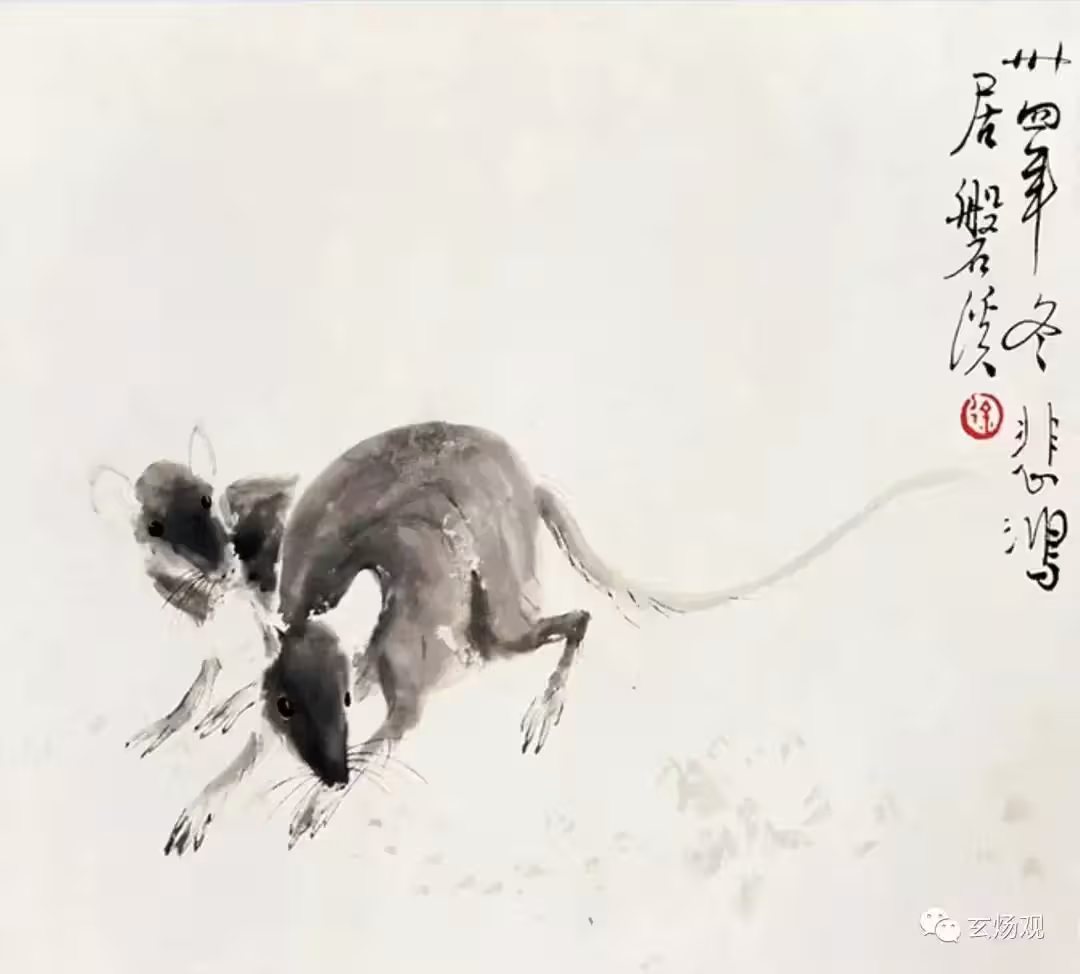 卅四年冬悲鸿
居磐溪
徐
玄炀观